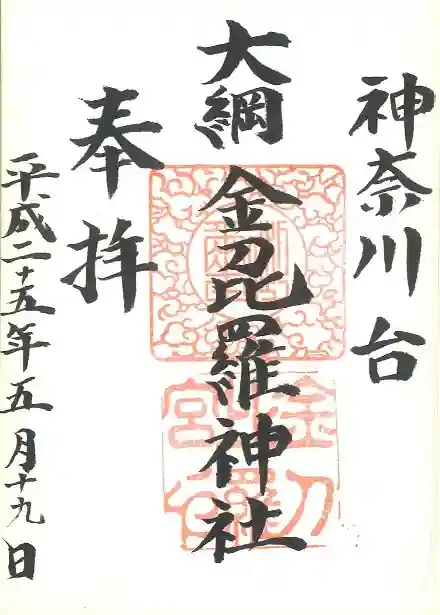 神奈川台
大綱金毘羅神社
奉拝
平成二十五年五月十九日